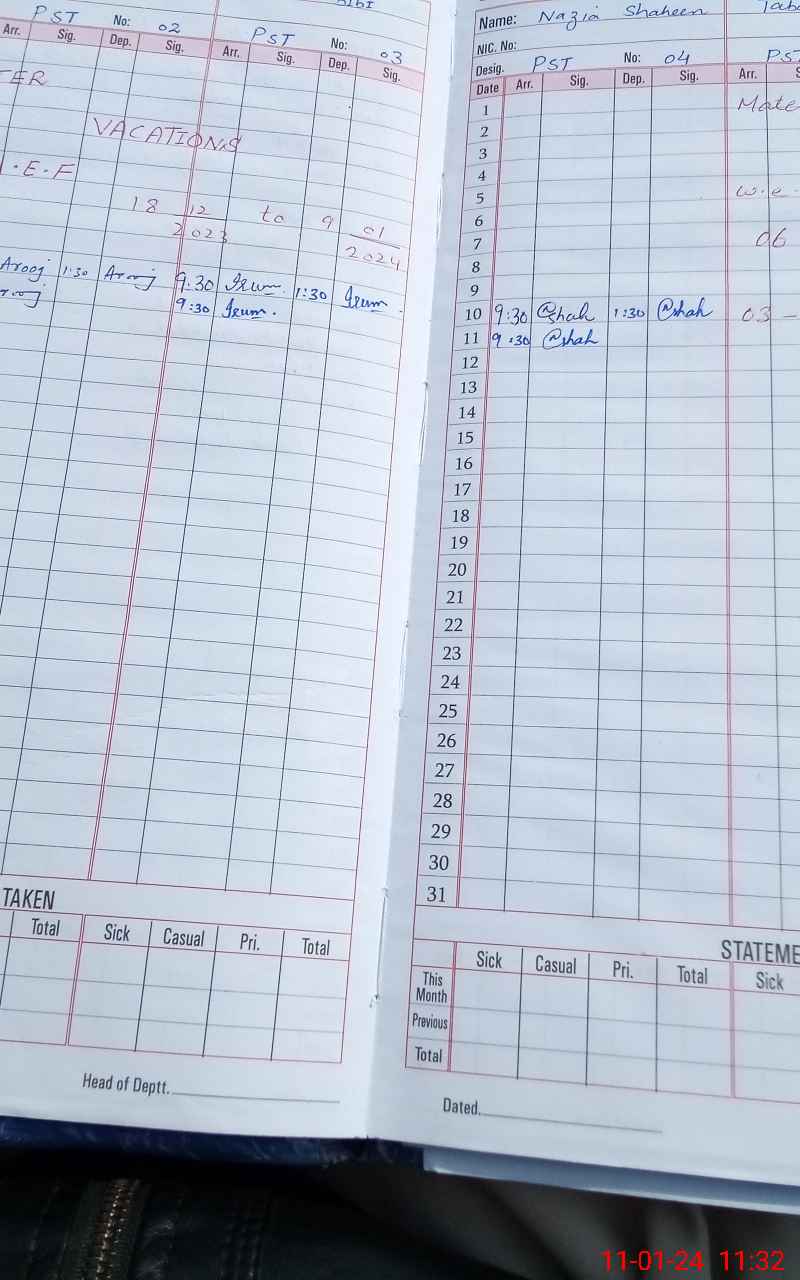 PST No: 02 PST No: 03
Arr. Sig. Dep. Sig. Arr. Sig. Dep. Sig.
TER
VACATIONS
.E.F
18 12/2023 to 9 01/2024
Arooj 1:30 Arooj 9:30 Irum. 1:30 Irum.
9:30 Irum.
TAKEN
Total Sick Casual Pri. Total
Head of Deptt.
Name: Nazia Shaheen
NIC. No:
Desig. PST No: 04 PST
Date Arr. Sig. Dep. Sig. Arr.
1 Mate
2
3
4
5 w.e.
6
7 06
8
9
10 9:30 @shah 1:30 @shah 03 -
11 9:30 @shah
12
13
14
15
16
17
18
19
20
21
22
23
24
25
26
27
28
29
30
31
STATEME
Sick Casual Pri. Total Sick
This Month
Previous
Total
Dated.
11-01-24 11:32